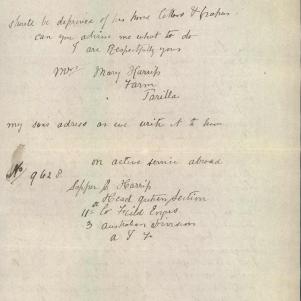 should be deprived of his home letters & papers
can you advise me what to do
I are Respectfully yours
Mrs Mary Harriss
Farm
Tarilta
my sons adress as we write it to him
on active service abroad
No 9628
Sapper J Harriss
a Head quters Section
11th Co Field Engrs
3 australian Division
a I F